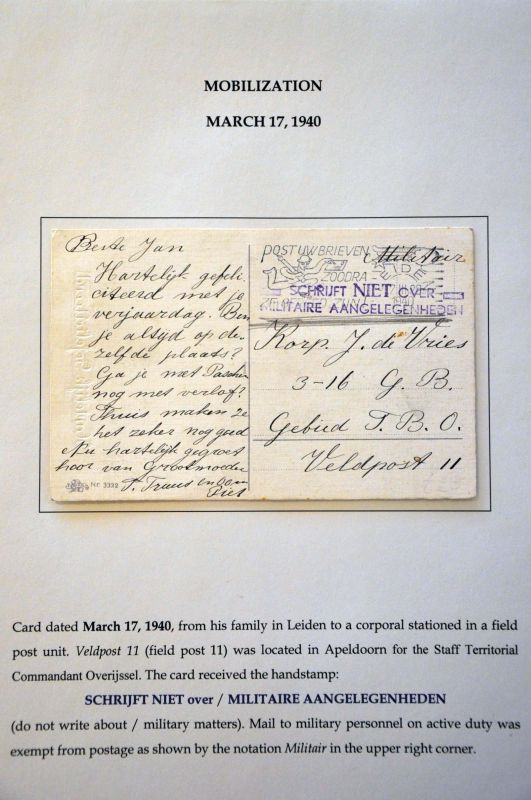 MOBILIZATION
MARCH 17, 1940
Beste Jan
Hartelijk gefeli
citeerd met je
verjaardag. Ben
je altijd op de-
zelfde plaats?
Ga je met Paschen
nog met verlof?
Thuis maken ze
het zeker nog goed
Nu hartelijk gegroet
hoor van Grootmoeder
T. Truus en Oom
Piet
Nr 3332
POST UW BRIEVEN
ZOODRA
ZE
Militair
LEIDEN
1940
SCHRIJFT NIET OVER
MILITAIRE AANGELEGENHEDEN
Korp. J. de Vries
3-16 G. B.
Gebied T. B. O.
Veldpost 11
Card dated March 17, 1940, from his family in Leiden to a corporal stationed in a field
post unit. Veldpost 11 (field post 11) was located in Apeldoorn for the Staff Territorial
Commandant Overijssel. The card received the handstamp:
SCHRIJFT NIET over / MILITAIRE AANGELEGENHEDEN
(do not write about / military matters). Mail to military personnel on active duty was
exempt from postage as shown by the notation Militair in the upper right corner.